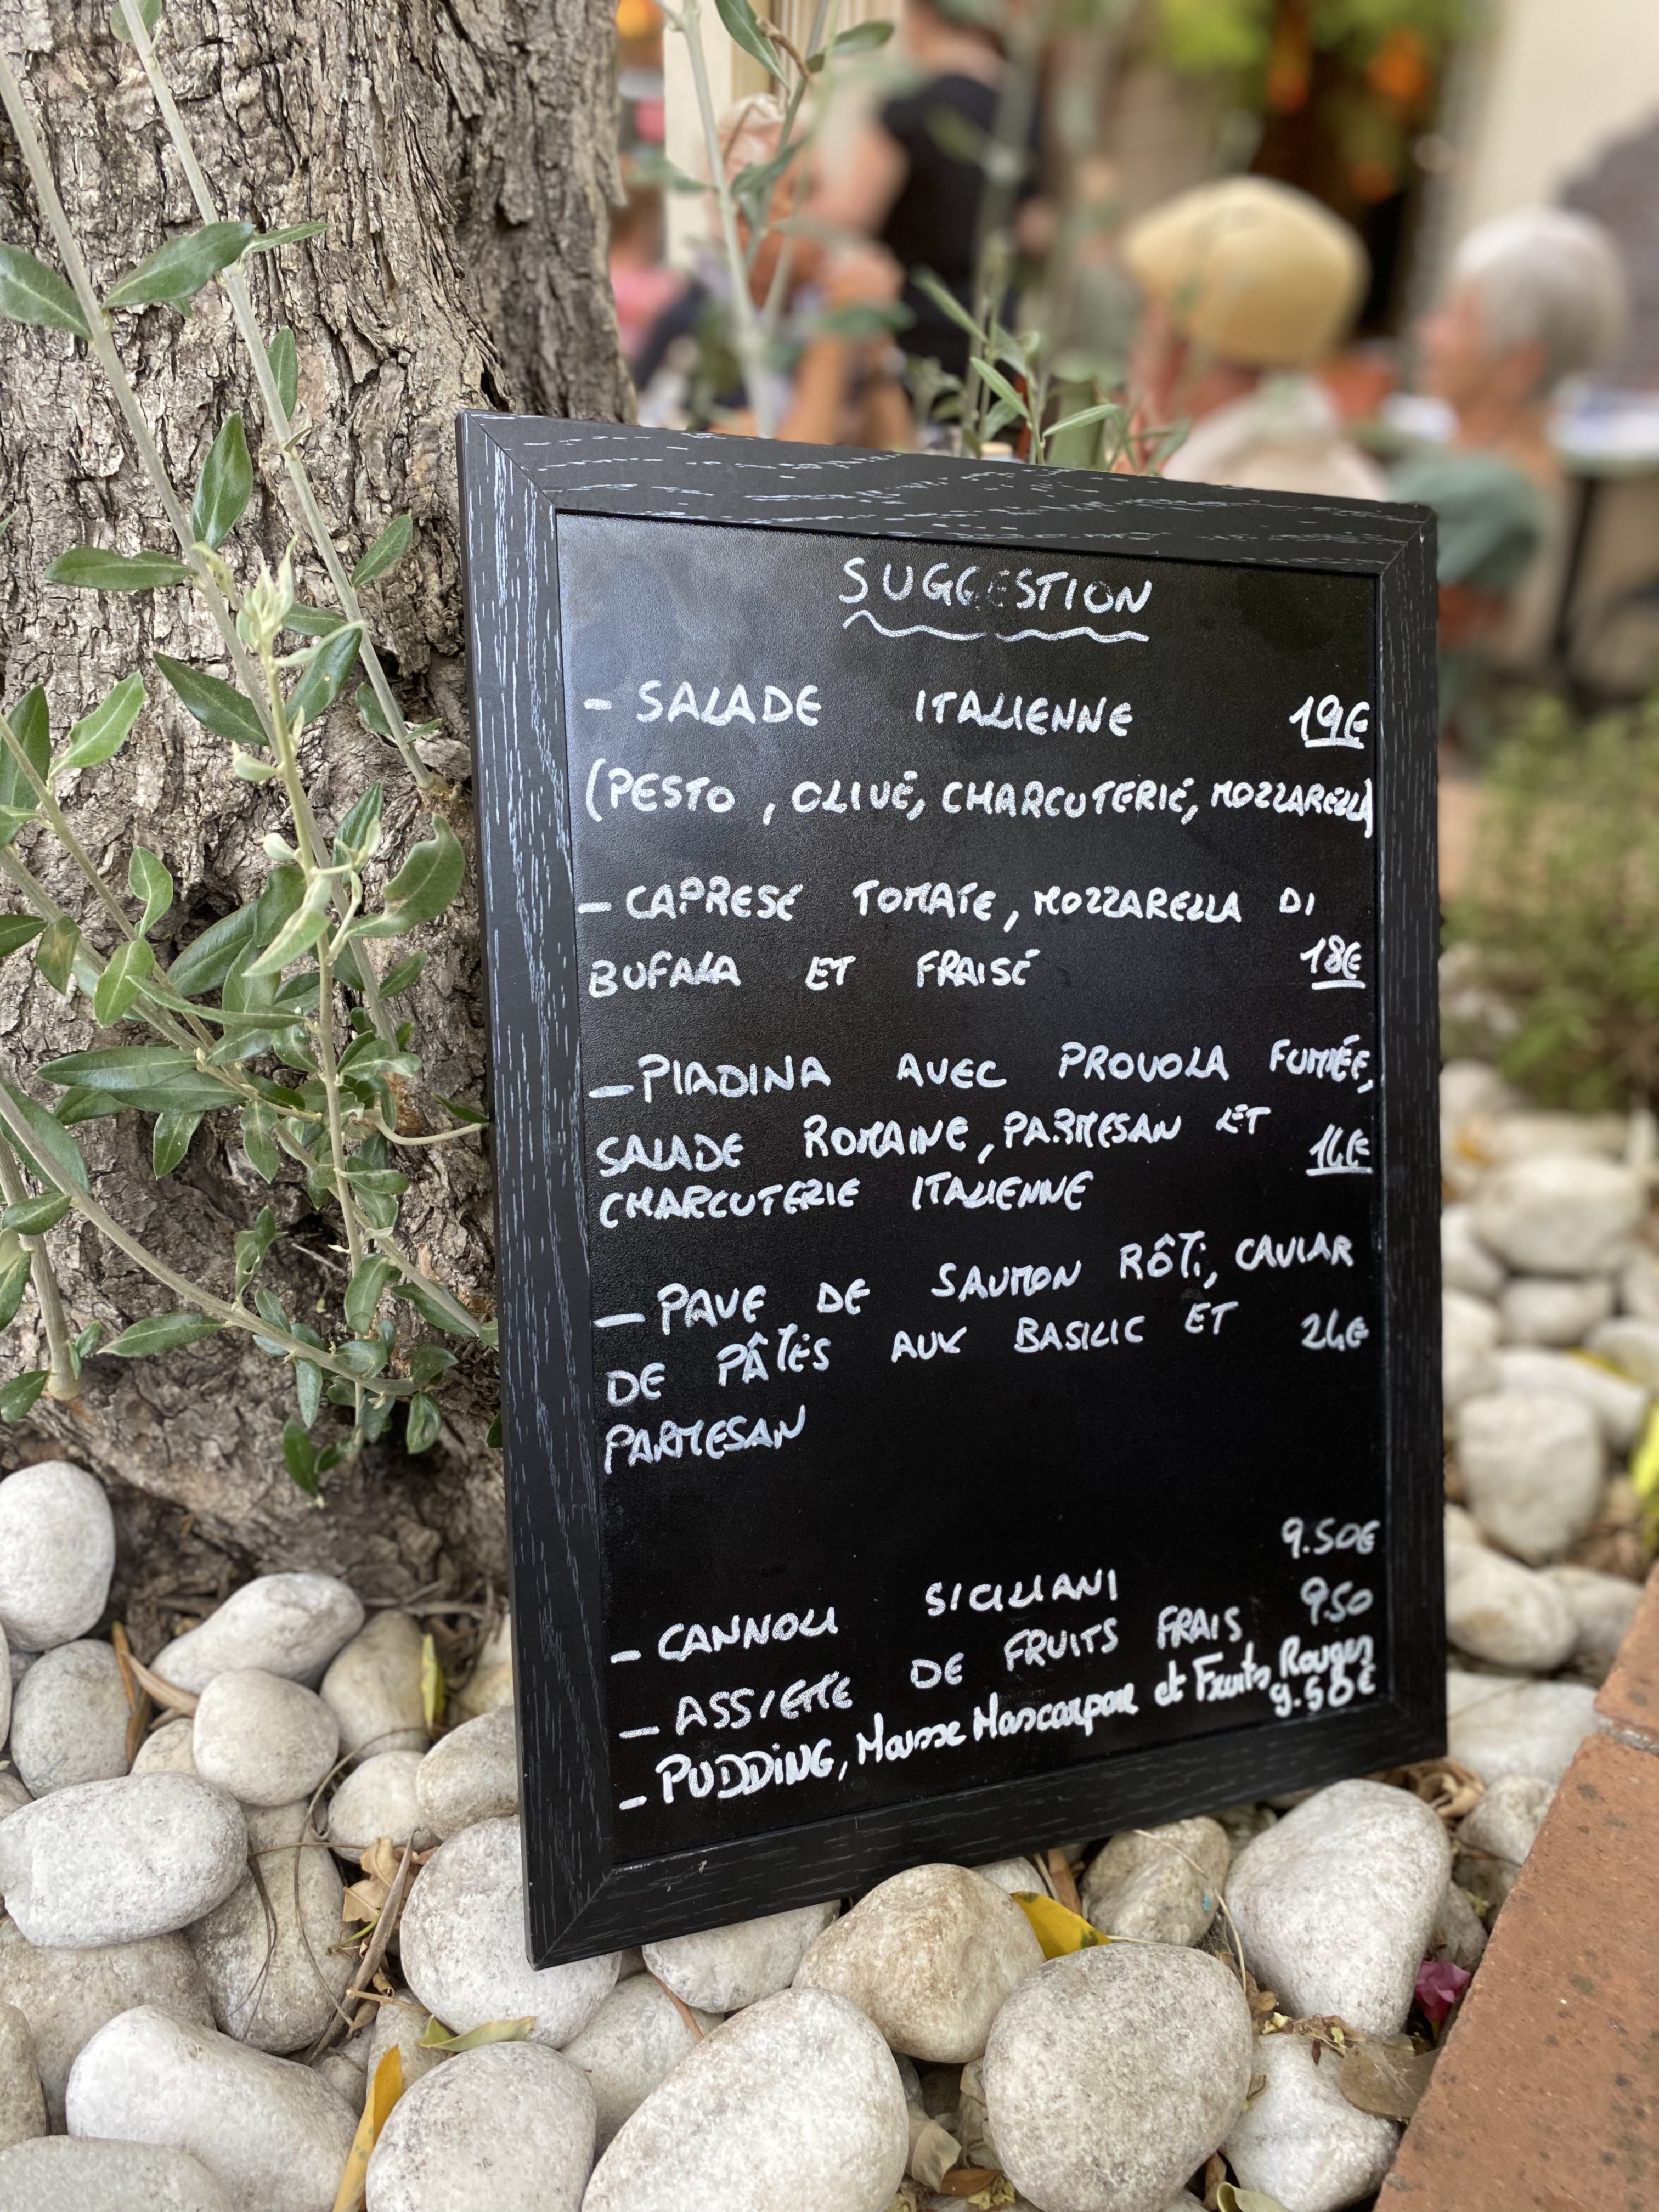 SUGGESTION
- SALADE ITALIENNE 19€
(PESTO, OLIVE, CHARCUTERIE, MOZZARELLA)
- CAPRESE TOMATE, MOZZARELLA DI
BUFALA ET FRAISE 18€
- PIADINA AVEC PROVOLA FUMÉE,
SALADE ROMAINE, PARMESAN ET
CHARCUTERIE ITALIENNE
- PAVE DE SAUMON RÔTI, CAVIAR
DE PÂTES AUX BASILIC ET 24€
PARMESAN
- CANNOLI SICILIANI 9.50€
- ASSIETTE DE FRUITS FRAIS 9.50
- PUDDING, Mousse Mascarpone et Fruits Rouges
9.50€